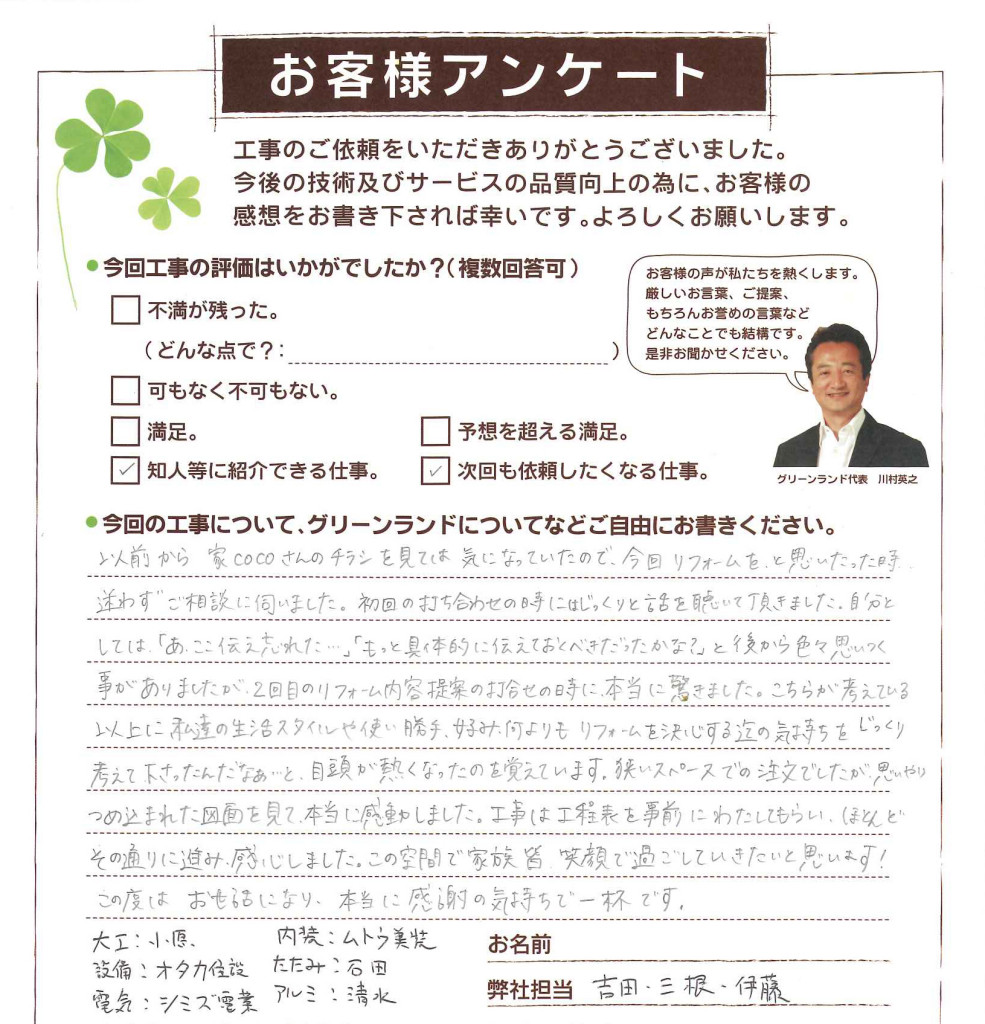 お客様アンケート
工事のご依頼をいただきありがとうございました。
今後の技術及びサービスの品質向上の為に、お客様の
感想をお書き下されば幸いです。よろしくお願いします。
今回工事の評価はいかがでしたか？(複数回答可)
不満が残った。
(どんな点で？: )
可もなく不可もない。
満足。
予想を超える満足。
✓ 知人等に紹介できる仕事。
✓ 次回も依頼したくなる仕事。
お客様の声が私たちを熱くします。
厳しいお言葉、ご提案、
もちろんお誉めの言葉など
どんなことでも結構です。
是非お聞かせください。
グリーンランド代表 川村英之
今回の工事について、グリーンランドについてなどご自由にお書きください。
以前から 家cocoさんのチラシを見ては 気になっていたので、今回 リフォームを、と思いたった時、
迷わず ご相談に伺いました。初回の打ち合わせの時にはじっくりと話を聴いて頂きました。自分と
しては、「あ、ここ伝え忘れた…」「もっと具体的に伝えておくべきだったかな?」と後から色々思いつく
事がありましたが、2回目のリフォーム内容提案の打合せの時に、本当に驚きました。こちらが考えている
以上に 私達の生活スタイルや使い勝手、好み、何よりも リフォームを決心する迄の気持ちを じっくり
考えて下さったんだなぁ…と、目頭が熱くなったのを覚えています。狭いスペースでの注文でしたが、思いやり
つめ込まれた図面を見て、本当に感動しました。工事は工程表を事前にわたしてもらい、ほとんど
その通りに進み、感心しました。この空間で家族皆、笑顔で過ごしていきたいと思います!
この度は お世話になり、本当に感謝の気持ちで一杯です。
大工：小原.
内装：ムトウ美装
設備：オタカ住設
たたみ：石田
電気：シミズ電業
アルミ：清水
お名前
弊社担当 吉田・三根・伊藤